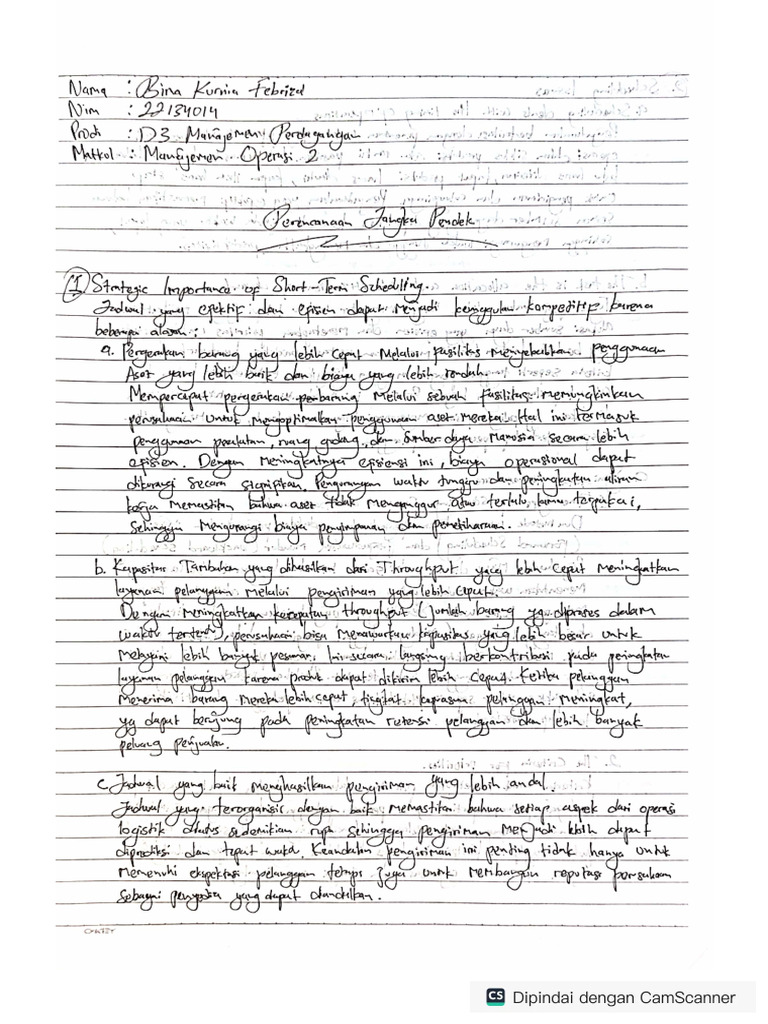 Nama : Bina Kurnia Febrizal
Nim : 22134014
Prodi : D3 Manajemen Perdagangan
Matkul : Manajemen Operasi 2
Perencanaan Jangka Pendek
1 Strategic Importance of Short-Term Schedulling.
Jadwal yang efektif dan efisien dapat menjadi keunggulan kompetitif karena
beberapa alasan :
a. Pergerakan barang yang lebih cepat melalui fasilitas menyebabkan penggunaan
Aset yang lebih baik dan biaya yang lebih rendah.
Mempercepat pergerakan barang melalui sebuah fasilitas memungkinkan
perusahaan untuk mengoptimalkan penggunaan aset mereka. Hal ini termasuk
penggunaan peralatan, ruang gudang, dan sumber daya manusia secara lebih
efisien. Dengan meningkatnya efisiensi ini, biaya operasional dapat
dikurangi secara signifikan. Pengurangan waktu tunggu dan peningkatan aliran
kerja memastikan bahwa aset tidak menganggur atau terlalu lama terpakai,
Sehingga mengurangi biaya penyimpanan dan pemeliharaan.
b. Kapasitas Tambahan yang dihasilkan dari Throughput yang lebih cepat meningkatkan
layanan pelanggan melalui pengiriman yang lebih cepat.
Dengan meningkatkan kecepatan throughput (jumlah barang yg diproses dalam
waktu tertentu), perusahaan bisa menawarkan kapasitas yang lebih besar untuk
melayani lebih banyak pesanan. Ini secara langsung berkontribusi pada peningkatan
layanan pelanggan karena produk dapat dikirim lebih cepat. Ketika pelanggan
menerima barang mereka lebih cepat, tingkat kepuasan pelanggan meningkat,
yg dapat berujung pada peningkatan retensi pelanggan dan lebih banyak
peluang penjualan.
c. Jadwal yang baik menghasilkan pengiriman yang lebih andal.
Jadwal yang terorganisir dengan baik memastikan bahwa setiap aspek dari operasi
logistik diatur sedemikian rupa sehingga pengiriman menjadi lebih dapat
diprediksi dan tepat waktu. Keandalan pengiriman ini penting tidak hanya untuk
memenuhi ekspektasi pelanggan tetapi juga untuk membangun reputasi perusahaan
sebagai penyedia yang dapat diandalkan.
CS Dipindai dengan CamScanner